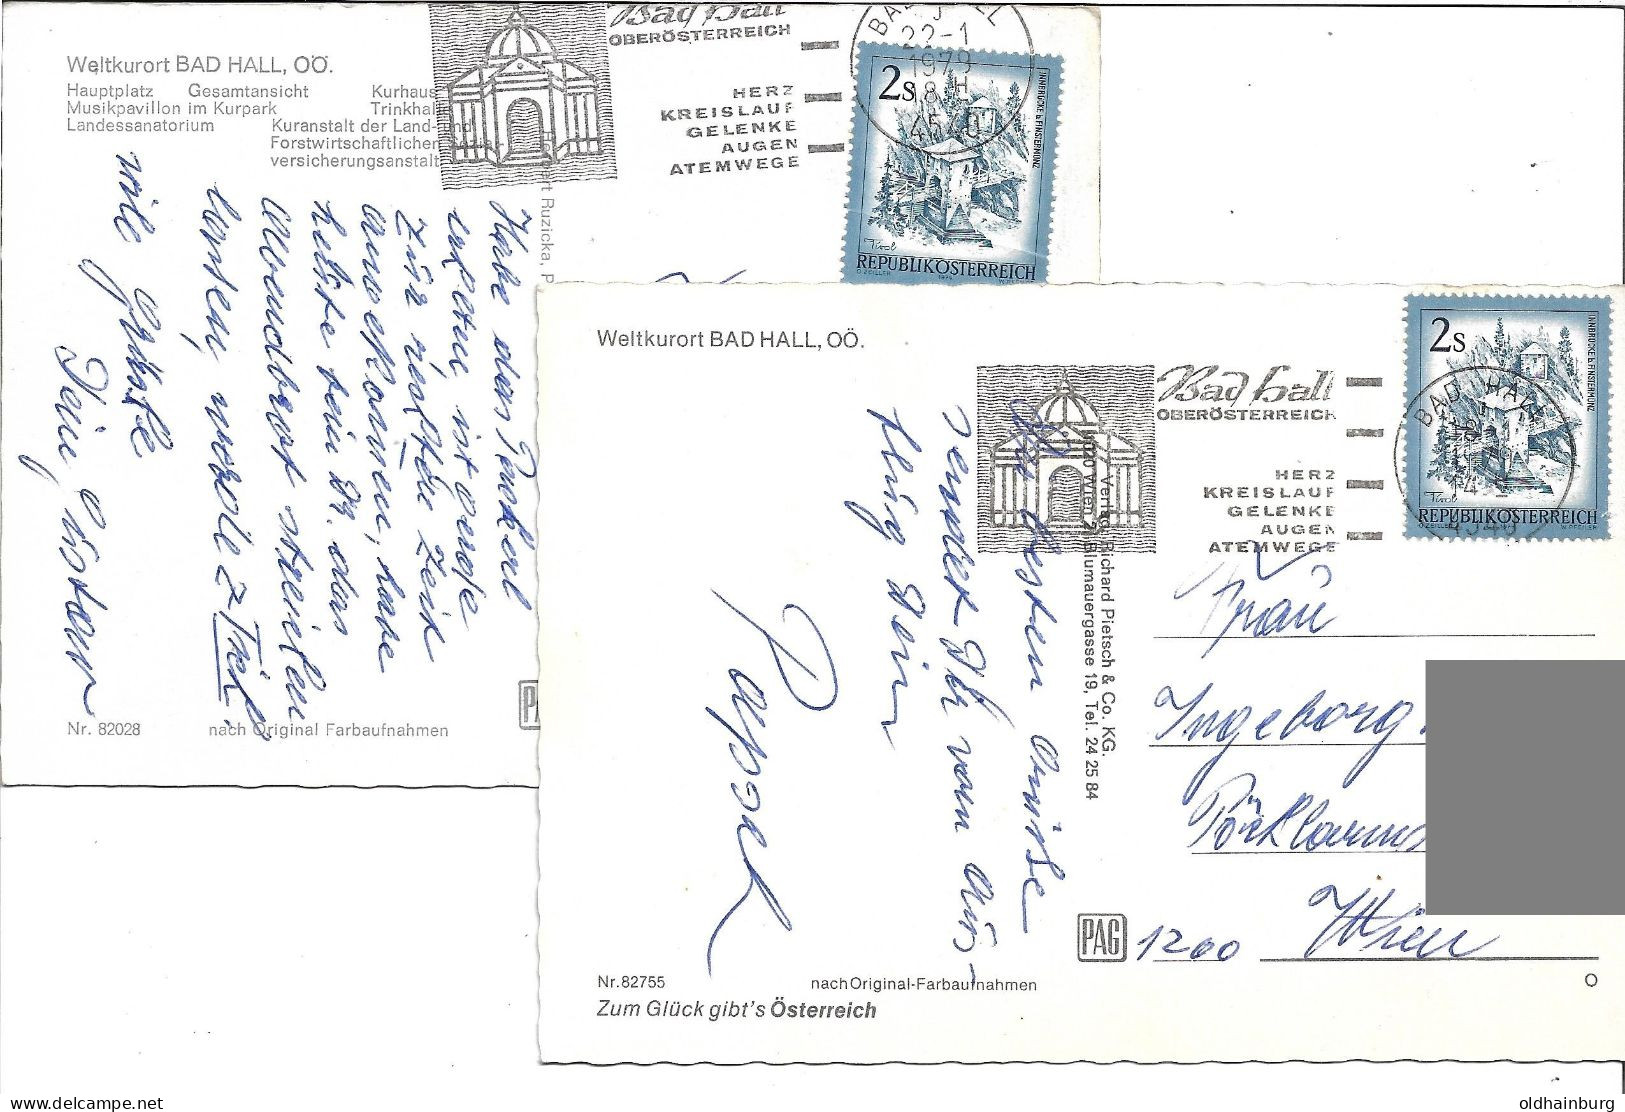 Weltkurort BAD HALL, OÖ.
Hauptplatz Gesamtansicht Kurhaus
Musikpavillon im Kurpark Trinkhalle
Landessanatorium Kuranstalt der Land- und
Forstwirtschaftlichen
versicherungsanstalt
Bad Hall
OBERÖSTERREICH
HERZ
KREISLAUF
GELENKE
AUGEN
ATEMWEGE
BAD HALL
22-1
1979
18 H
4540
2s
INNBRÜCKE b. FINSTERMÜNZ
Tirol
REPUBLIK ÖSTERREICH
Ruzicka, P
Habe das Paket
ist
zur Zeit
angekommen, habe
heute beim Dr. das
Abendbrot streichen
lassen, wiege z Zeit
viele Grüße
Dein Gustav
Nr. 82028 nach Original Farbaufnahmen
PAG
Weltkurort BAD HALL, OÖ.
Bad Hall
OBERÖSTERREICH
HERZ
KREISLAUF
GELENKE
AUGEN
ATEMWEGE
BAD HALL
4540
2s
INNBRÜCKE b. FINSTERMÜNZ
Tirol
REPUBLIK ÖSTERREICH
Richard Pietsch & Co. KG.
1020 Wien 2, Blumauergasse 19, Tel. 24 25 84
Die besten Grüße
sendet Dir vom Aus-
flug Dein
Papsch
Frau
Ingeborg
Pöchlarns
1200 Wien
PAG
Nr.82755 nach Original-Farbaufnahmen
Zum Glück gibt's Österreich
O
oldhainburg
delcampe.net